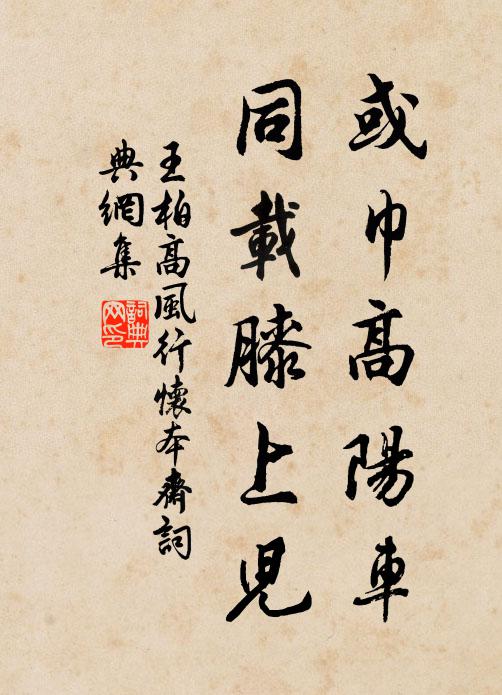 或巾高陽車
同載膝上児
王柏高風行懷本齋詞
典網集
詞典网印